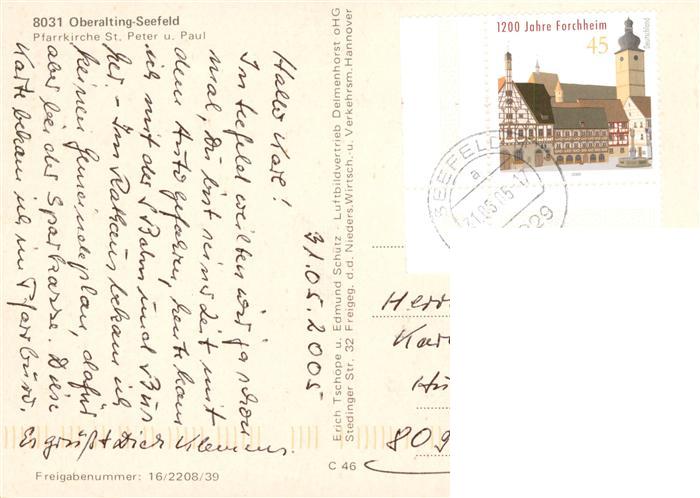 8031 Oberalting-Seefeld
Pfarrkirche St. Peter u. Paul
31.05.2005
Hallo Karl!
In Seefeld weilten wir ja schon
mal, Du bist seinerzeit mit
dem Auto gefahren, heute kam
ich mit der S Bahn und Bus
her - Im Rathaus bekam ich
keinen Gemeindeplan, dafür
aber bei der Sparkasse. Diese
Karte bekam ich im Pfarrbüro.
Es grüßt Dich Klemens.
Freigabenummer: 16/2208/39
Erich Tschöpe u. Edmund Schütz · Luftbildvertrieb Delmenhorst oHG
Stedinger Str. 32 Freigeg. d.d. Nieders.Wirtsch.-u. Verkehrsm. Hannover
C 46
1200 Jahre Forchheim
45
Deutschland
SEEFELD
a
31.05.05-17
229
Herr
Kar
Hü
809